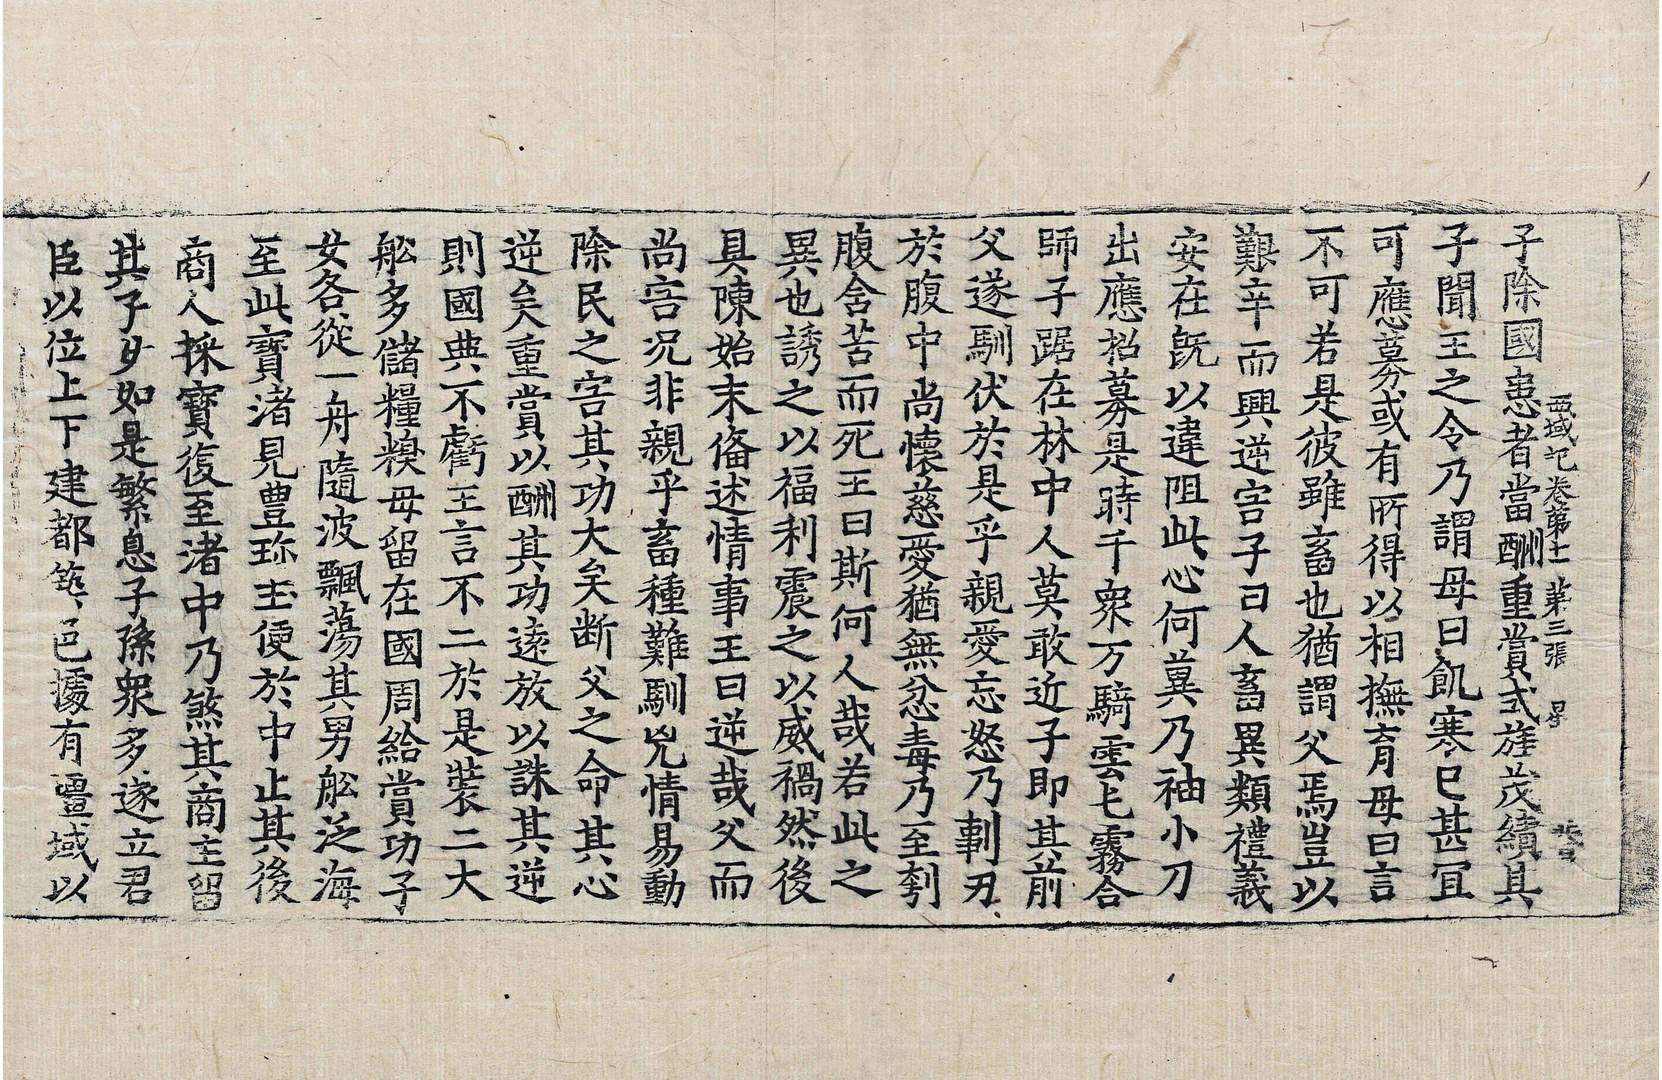 西域記卷第十一 第三張 星
子除國患者當酬重賞式旌茂績其
子聞王之令乃謂母曰飢寒已甚冝
可應募或有所得以相撫育母曰言
不可若是彼雖畜也猶謂父焉豈以
艱辛而興逆害子曰人畜異類禮義
安在旣以違阻此心何冀乃袖小刀
出應招募是時千衆万騎雲屯霧合
師子踞在林中人莫敢近子即其前
父遂馴伏於是乎親愛忘怒乃剚刃
於腹中尚懷慈愛猶無忿毒乃至刳
腹含苦而死王曰斯何人哉若此之
異也誘之以福利震之以威禍然後
具陳始末俻述情事王曰逆哉父而
尚害况非親乎畜種難馴兇情易動
除民之害其功大矣断父之命其心
逆矣重賞以酬其功遠放以誅其逆
則國典不虧王言不二於是裝二大
舩多儲糧糗母留在國周給賞功子
女各從一舟隨波飄蕩其男舩泛海
至此寶渚見豊珎玉便於中止其後
商人採寶復至渚中乃煞其商主留
其子女如是繁息子孫衆多遂立君
臣以位上下建都築邑據有疆域以